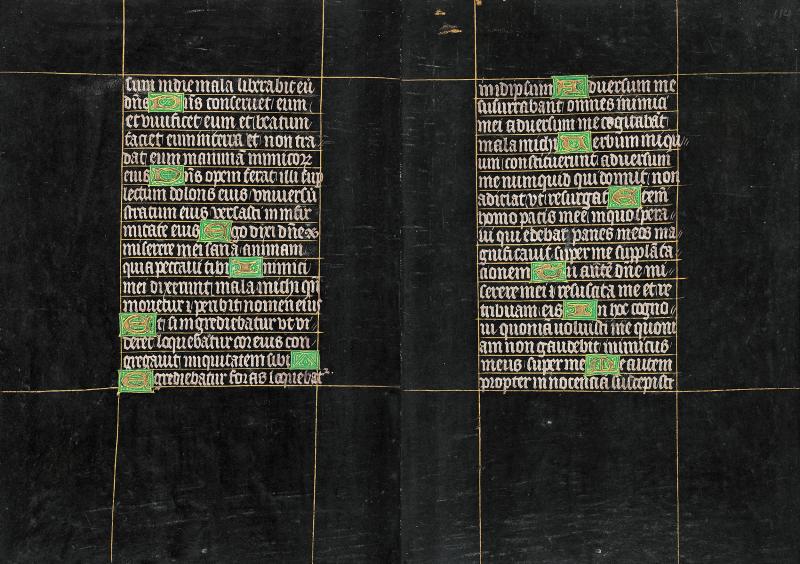 sum in die mala liberabit eū
dn̄s Dn̄s conseruet eum
et viuificet eum et beatum
faciet eum in terra et non tra
dat eum in animā inimicorꝫ
eius Dn̄s opem ferat illi sup
lectum doloris eius vniuersū
stratum eius versasti in infir
mitate eius Ego dixi dn̄e
miserere mei sana animam
quia peccaui tibi Inimici
mei dixerunt mala michi qn̄
morietur ⁊ peribit nomen eius
Et si ingrediebatur vt vi
deret loquebatur cor eius con
gregauit iniquitatem sibi
Egrediebatur foras loquebat
in idipsum Aduersum me
susurrabant omnes inimici
mei aduersum me cogitabāt
mala michi Uerbum iniqu
um constituerunt aduersum
me nunquid qui dormit non
adiciat vt resurgat Etenī
homo pacis mee in quo spera
ui qui edebat panes meos ma
gnificauit super me supplāta
cionem Tu autē dn̄e mi
serere mei ⁊ resuscita me et re
tribuam eis In hoc cogno
ui quoniā uoluisti me quoni
am non gaudebit inimicus
meus super me Me autem
propter innocenciā suscepisti
114